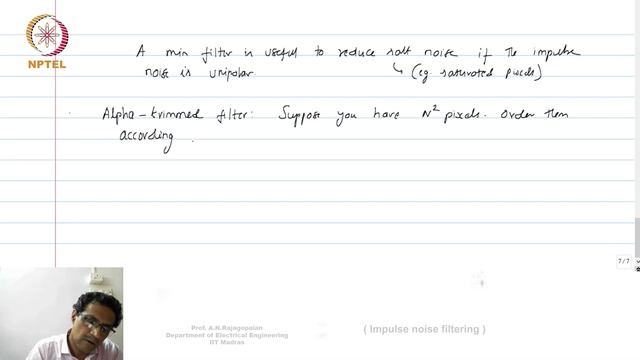 A min filter is useful to reduce salt noise if the impulse
noise is unipolar (eg. saturated pixels)
Alpha-trimmed filter: Suppose you have N² pixels. Order them
according
NPTEL
7/7
Prof. A.N.Rajagopalan
Department of Electrical Engineering
IIT Madras
( Impulse noise filtering )